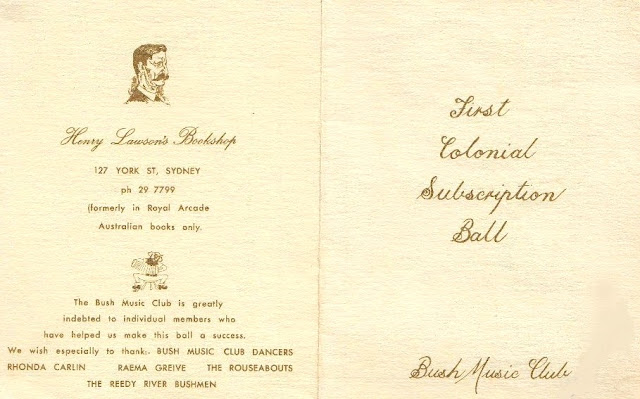 Henry Lawson's Bookshop
127 YORK ST, SYDNEY
ph 29 7799
(formerly in Royal Arcade
Australian books only.
The Bush Music Club is greatly
indebted to individual members who
have helped us make this ball a success.
We wish especially to thank:- BUSH MUSIC CLUB DANCERS
RHONDA CARLIN RAEMA GREIVE THE ROUSEABOUTS
THE REEDY RIVER BUSHMEN
First
Colonial
Subscription
Ball
Bush Music Club